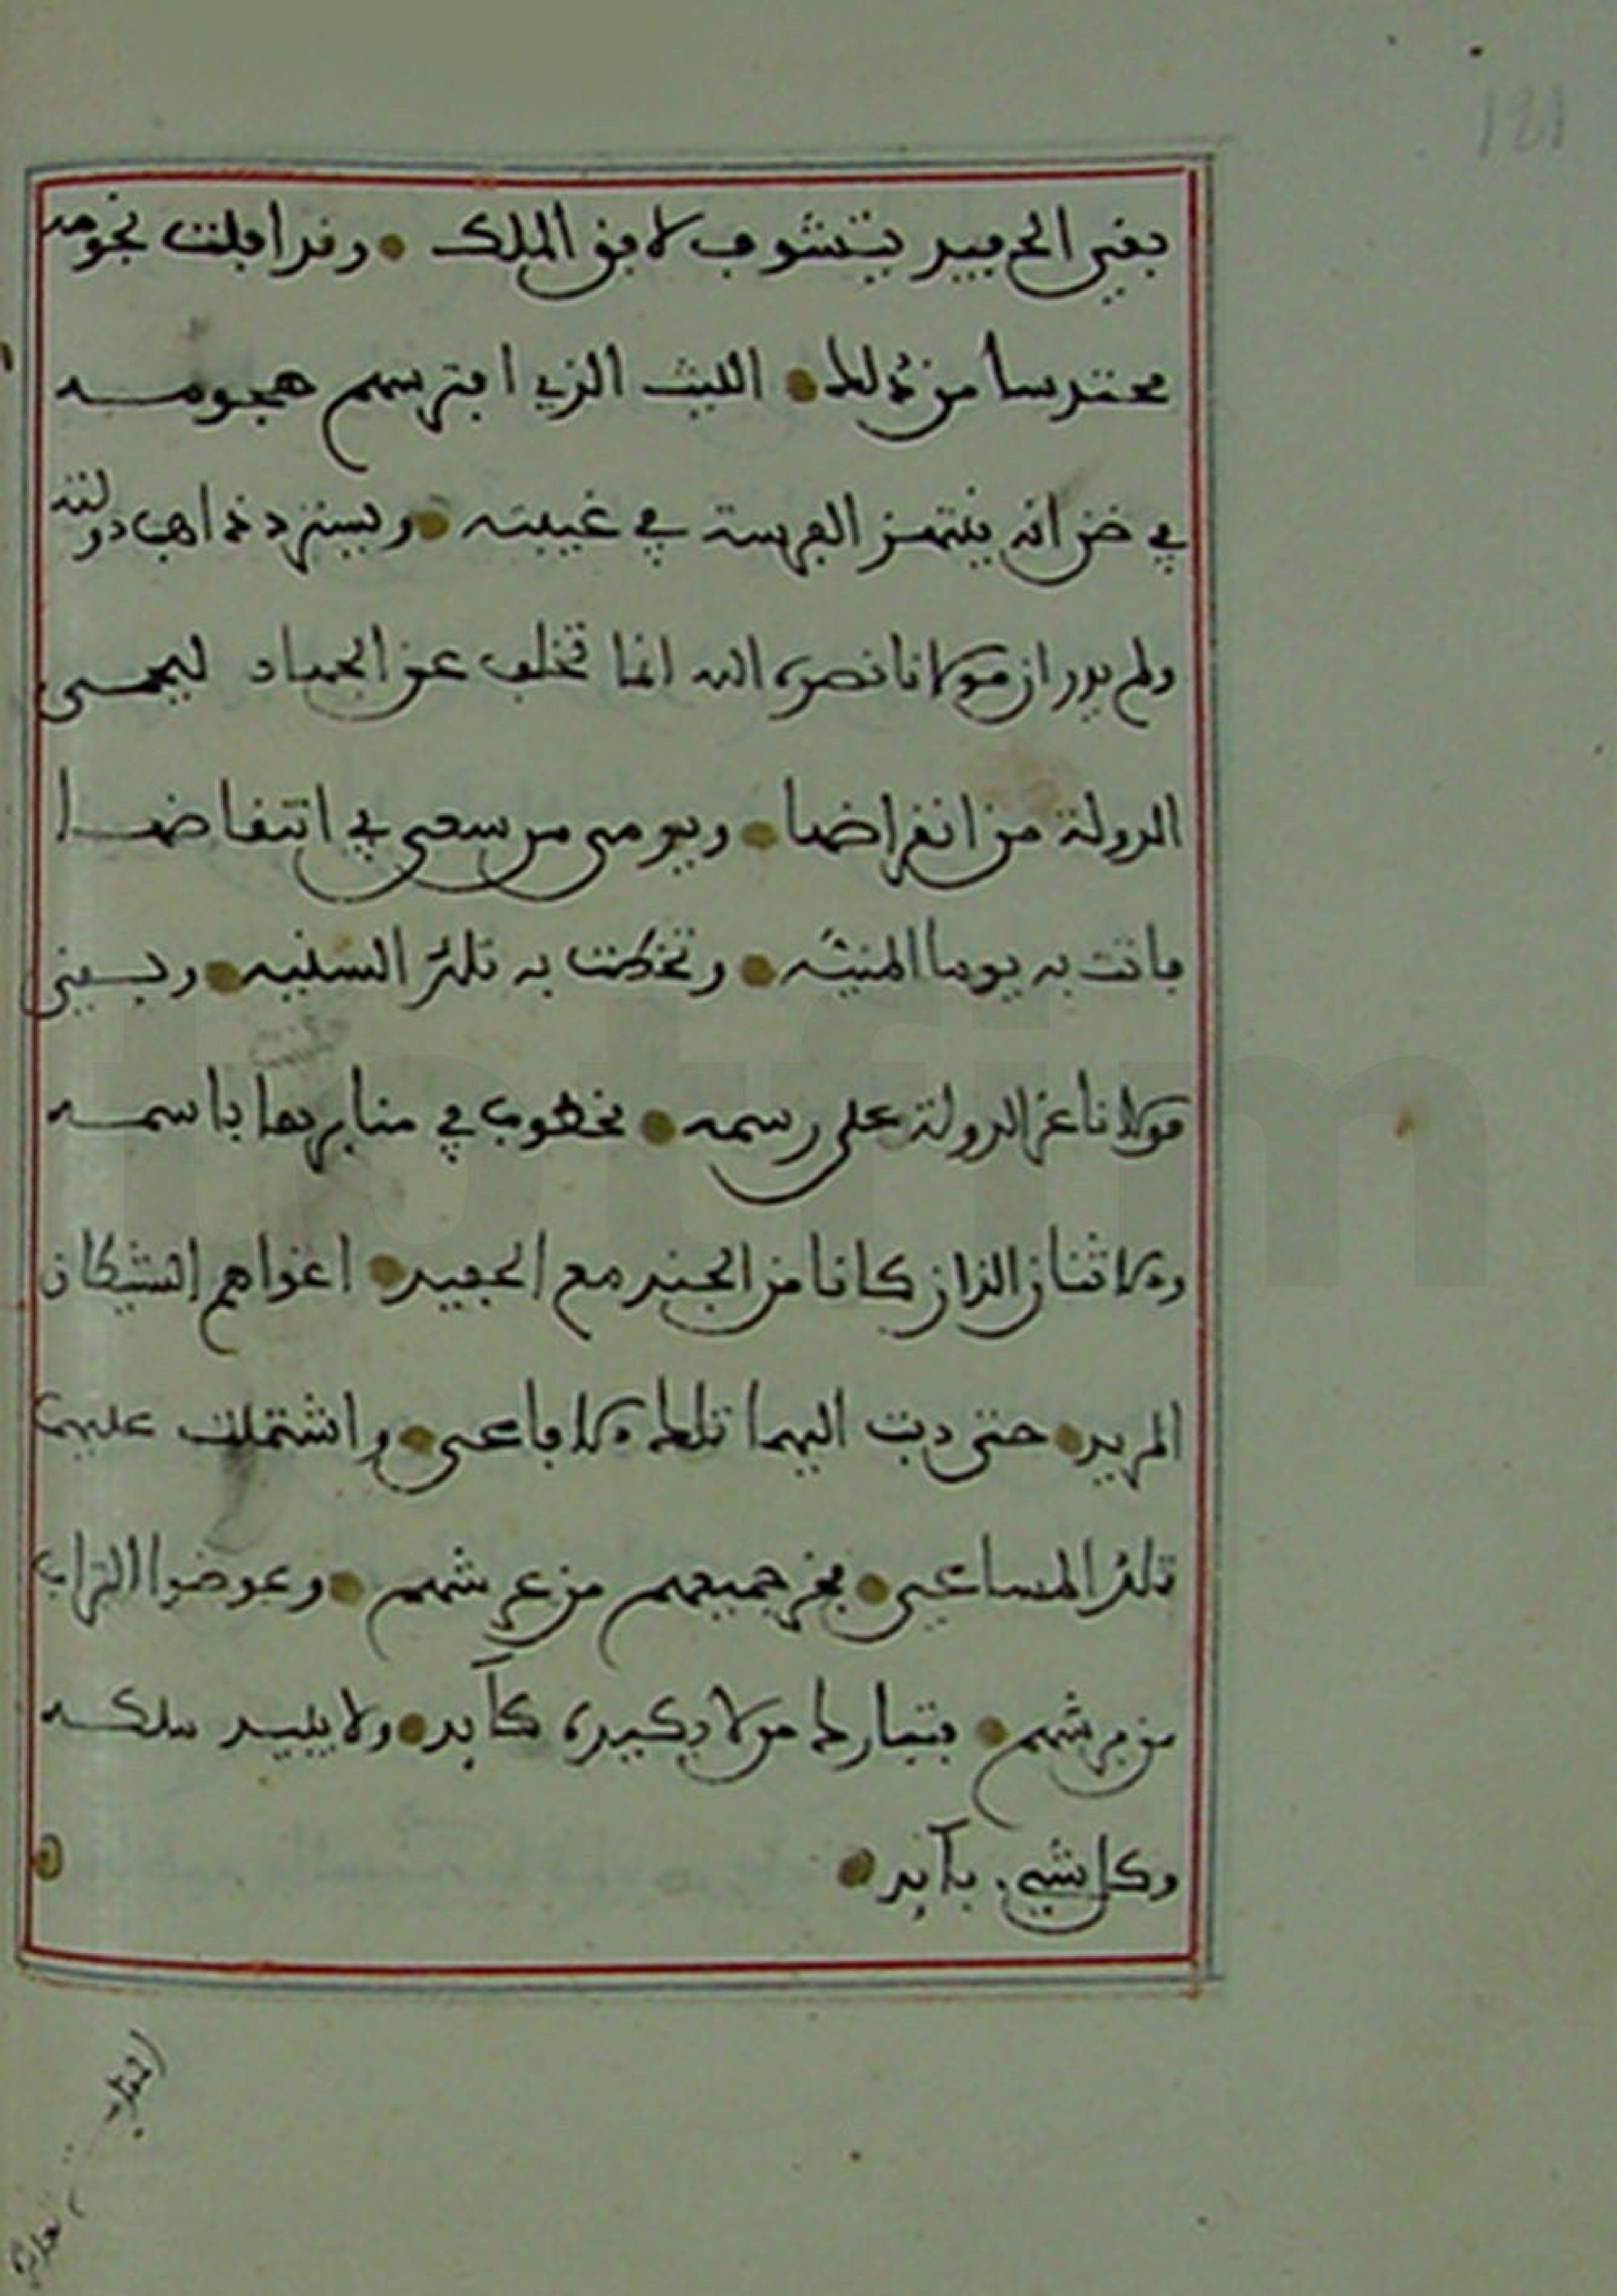 121
بقى الحفيد يتشوف لافق الملك • وقد افلت نجومه
محترسا من ذلك • الليث الذي افترسهم هجومه
في ظن انه ينتهز الفرصة في غيبته • ويسترد ذاهب دولته
ولم يدر ان مولانا نصره الله انما تخلف عن الجهاد ليحمى
الدولة من انقراضها • ويومى من سعى في انتقاضها
فاتت به يوما المنية • وتخطت به تلك السنيه • وبقى
مولانا عز الدولة على رسمه • نخطوب في منابرها باسمه
والاثنان الذان كانا من الجند مع الحفيد • اغواهم الشيطان
المريد • حتى دبت اليهما تلك الافاعى • واشتملت عليهما
تلك المساعى • فخر جميعهم من عرشهم • وعوضوا التراب
من فرشهم • فتبارك من لا يكيده كآيد • ولا يبيد ملكه
وكل شيء بآيد •